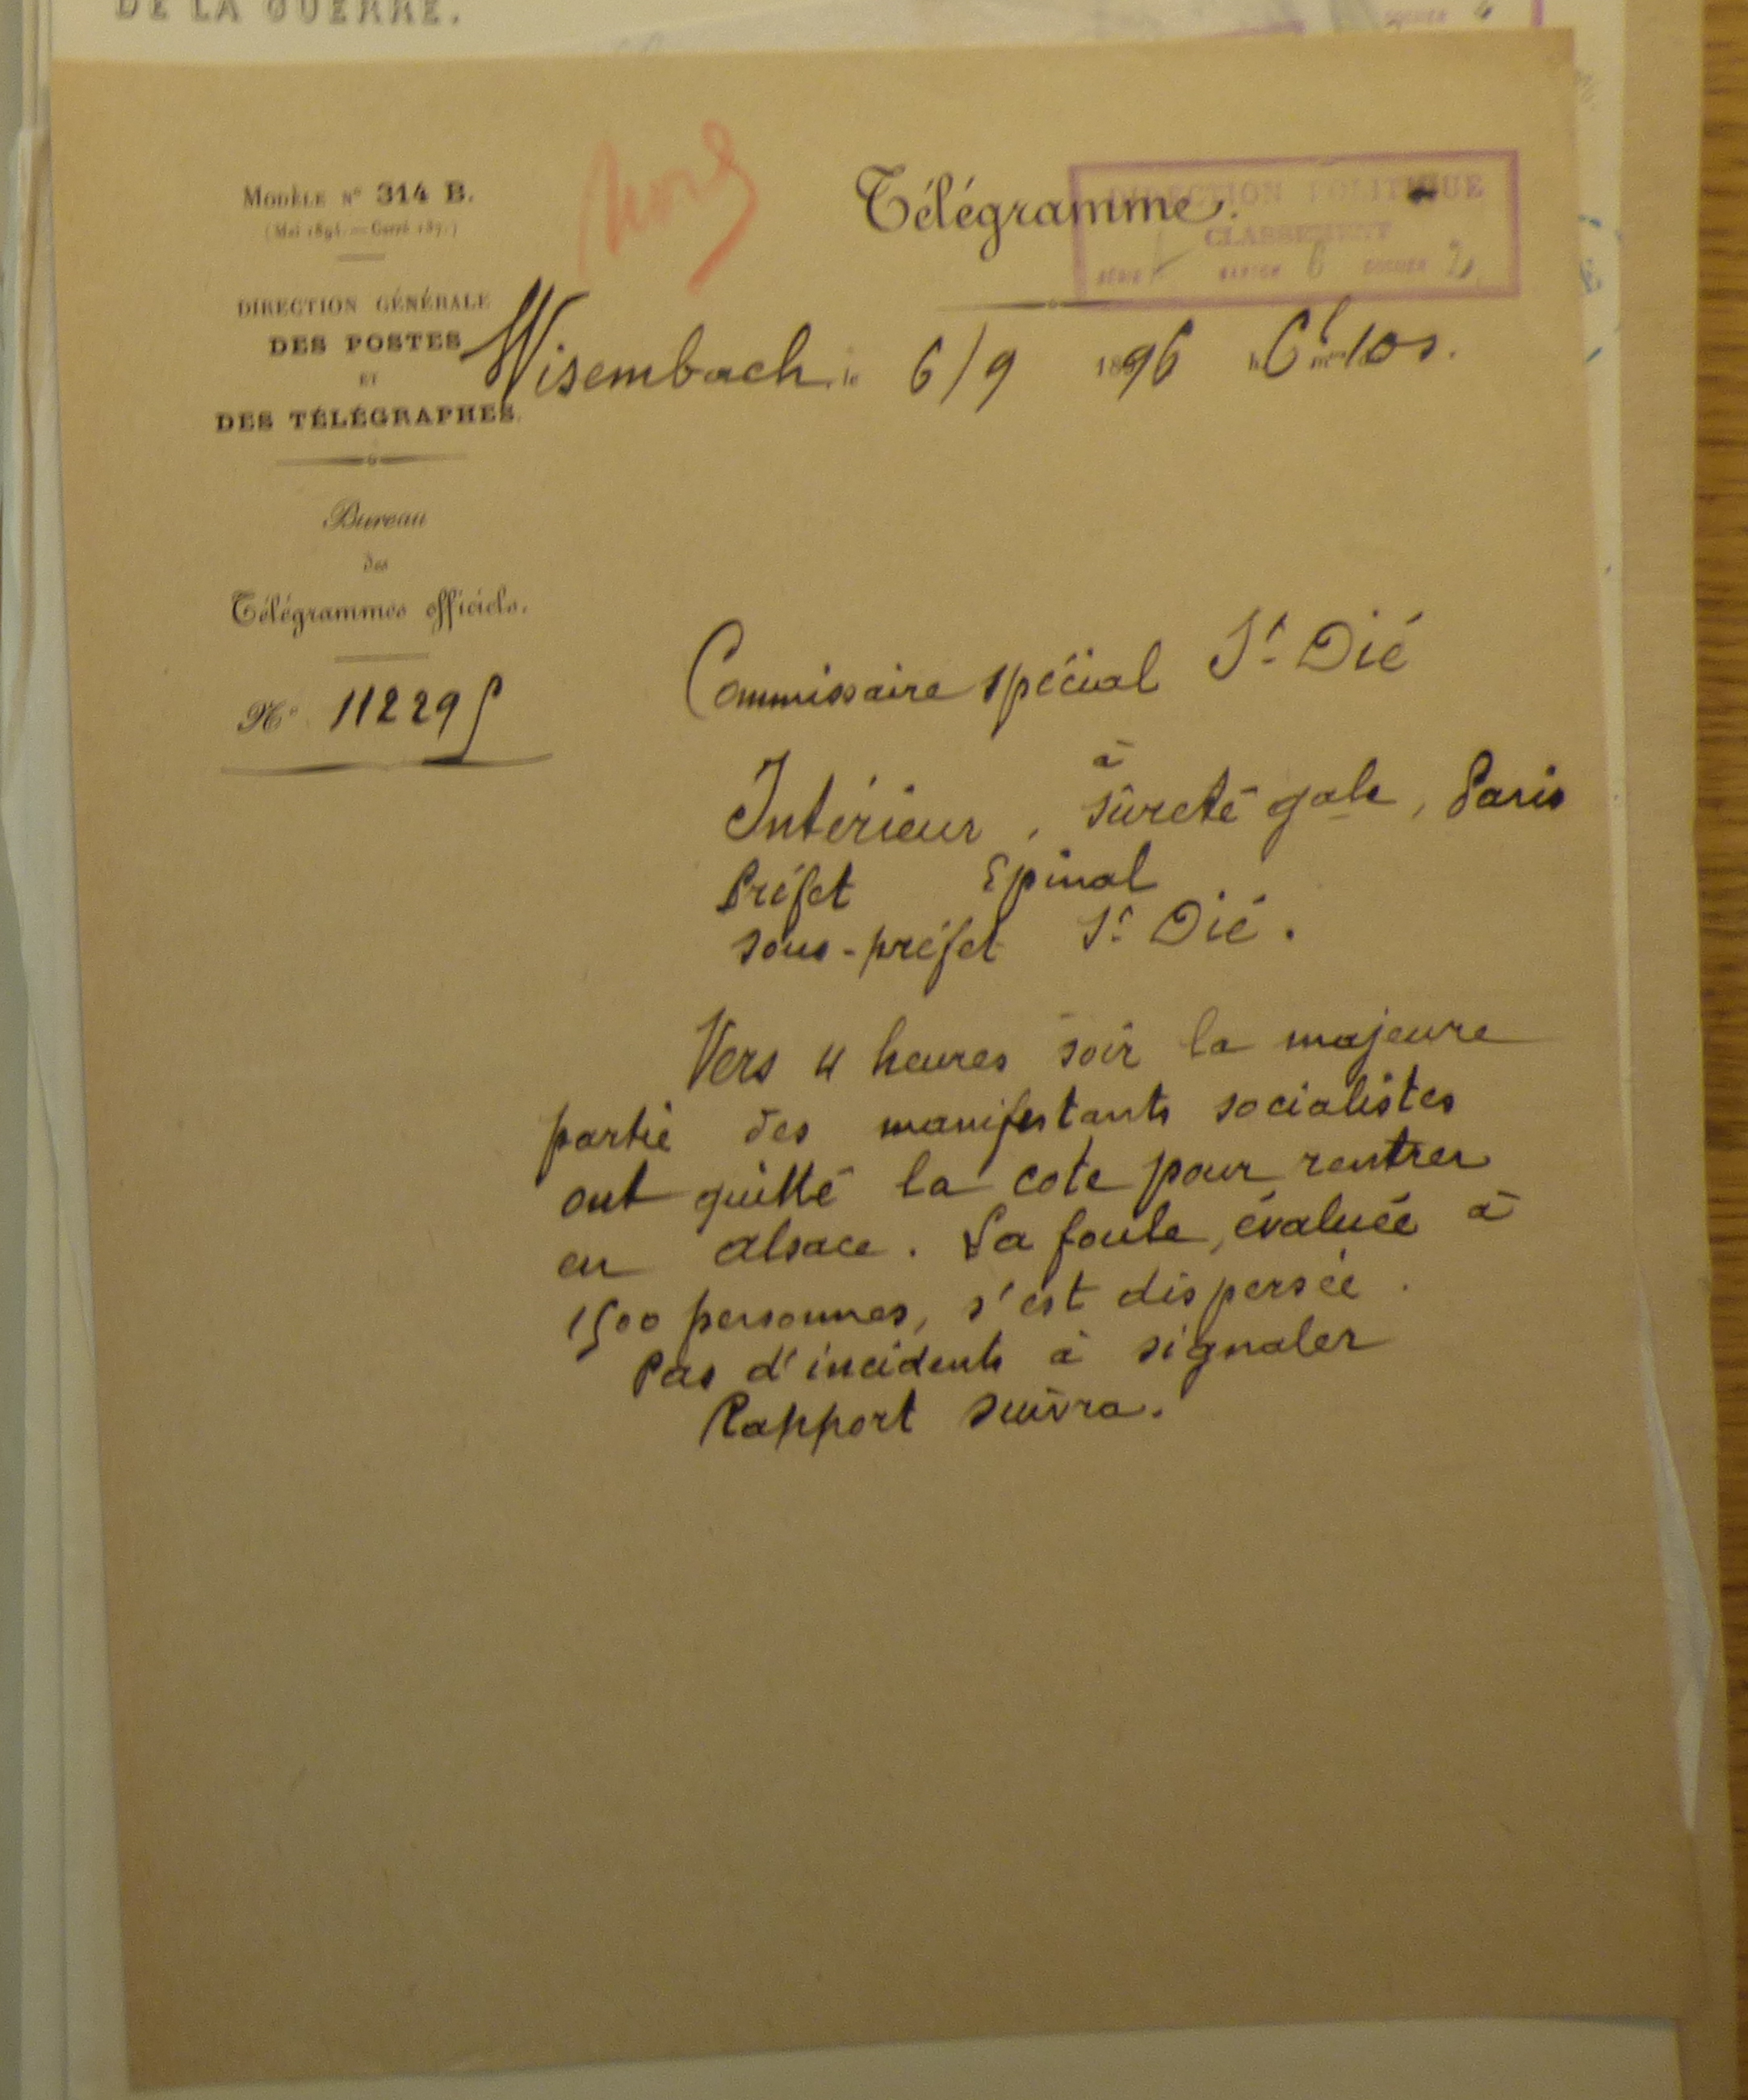 DE LA GUERRE.
MODÈLE N° 314 B.
DIRECTION GÉNÉRALE
DES POSTES
ET
DES TÉLÉGRAPHES.
Bureau
des
Télégrammes officiels.
N° 11229
Télégramme.
DIRECTION POLITIQUE
CLASSEMENT
SÉRIE CARTON 6 DOSSIER 2
Wisembach, le 6/9 1896 6h 10 s.
Commissaire spécial St Dié
à
Intérieur, sûreté gale, Paris
Préfet Epinal
sous-préfet St Dié.
Vers 4 heures soir la majeure
partie des manifestants socialistes
ont quitté la cote pour rentrer
en alsace. La foule, évaluée à
1500 personnes, s'est dispersée.
Pas d'incidents à signaler
Rapport suivra.